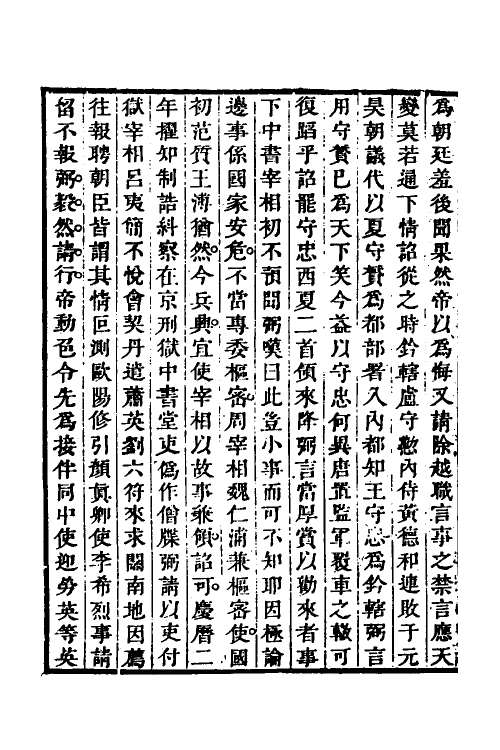 為朝廷羞後聞果然帝以為悔又請除越職言事之禁言應天
變莫若通下情詔從之時鈐轄盧守懃內侍黃德和連敗于元
昊朝議代以夏守贇為都部署入內都知王守忠為鈐轄弼言
用守贇已為天下笑今益以守忠何異唐置監軍覆車之轍可
復蹈乎詔罷守忠西夏二首領來降弼言當厚賞以勸來者事
下中書宰相初不預聞弼嘆曰此豈小事而可不知耶因極論
邊事係國家安危不當專委樞密周宰相魏仁浦兼樞密使國
初范質王溥猶然今兵興宜使宰相以故事兼領詔可慶曆二
年擢知制誥糾察在京刑獄中書堂吏僞作僧牒弼請以吏付
獄宰相呂夷簡不悅會契丹遣蕭英劉六符來求關南地因薦
往報聘朝臣皆謂其情叵測歐陽修引顏真卿使李希烈事請
留不報弼毅然請行帝動色令先為接伴同中使迎勞英等英